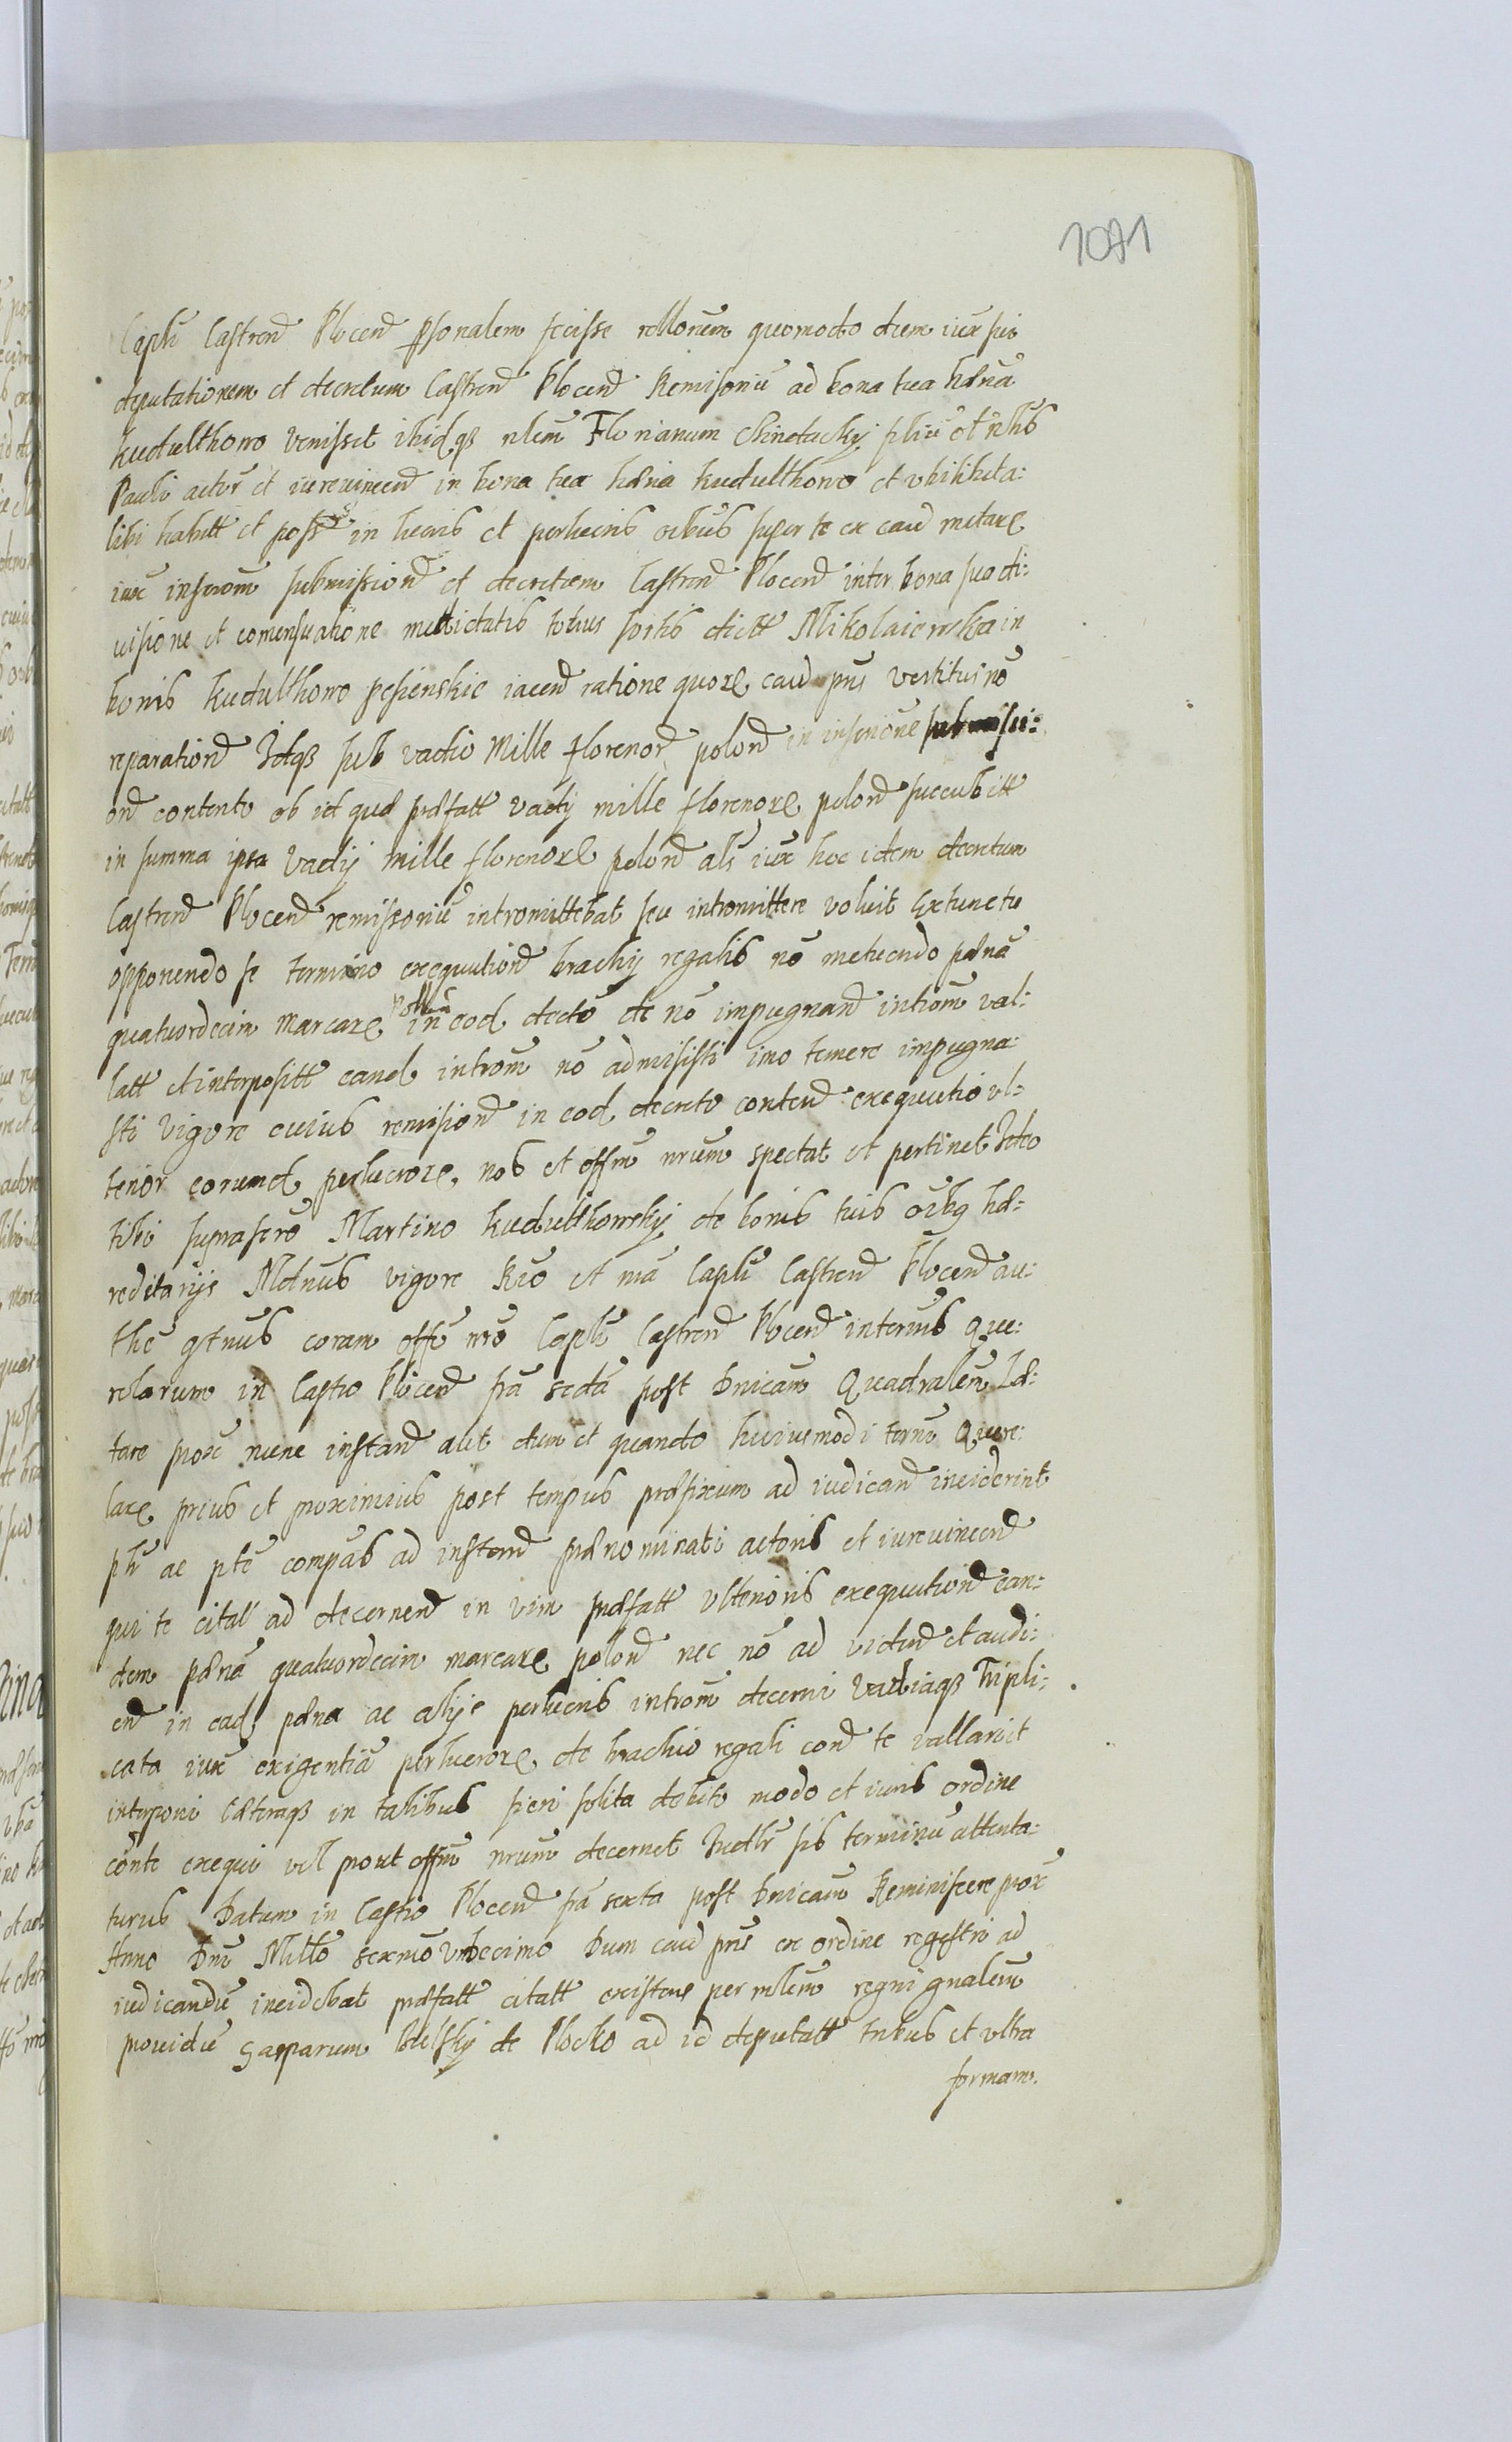 1071
Caplri Castren Plocen psonalem fecisse rellonem quomodo idem iux sui
deputationem et decretum Castren Plocen Remisoriu ad bona tua hdria
kudulthowo venisset ibidqz nlem Florianum Chinotachy filiu olim nlis
Pauli actor et iurevincen in bona tua hdria kudulthowo et ubilibeta:
libi habitt et poss in lucris et perlucris oibus super te ex caud metare
iux inscrom submission et decretum Castren Plocen inter bona sua di:
visione et comensuatione medietatis totius sortis dictt Mikolaiewska in
bonis kudulthowo iacen ratione quore caud pns vertitus no
reparation Idqz sub vadio Mille florenor polon in inscrione submissi:
on contento ob id quod prfatt vadij mille florenore polon succubitt
in summa ipsa vadij mille florenore polon als iux hoc idem decretum
Castren Plocen remissoriu intromittebat seu intromittere voluit Extunc tu
opponendo se termino exequution brachij regalis no metuendo pena
quatuordecim marcare pollon in eod decto de no impugnan introm val:
latt et interpositt eand introm no admisisti imo temere impugna:
sti vigore cuius remission in eod decreto conten exequutio ul:
terior eorumd perlucrore nos et offm nrum spectat et pertinet Ideo
tibi suprascro Martino kudulthowsky de bonis tuis oibq hd:
reditarijs Mdnus vigore Rio et ma Caplri Castren Plocen au:
the qtnus coram offo nro Caplri Castren Plocen in termis Que:
relarum in Castro Plocen fra secda post Dnicam Quadralem Ld:
tare prox nunc instan aut dum et quando huiusmodi termi Quere:
lare prius et proximius post tempus prdfixum ad iudican inciderint
plr ac pte compas ad instan prdnominati actoris et iurevincen
qui te citat ad decernen in vim prdfatt ulterioris exequution ean:
dem pdna quatuordecim marcare polon nec no ad viden et audi:
en in ead pdna ac alijs perlucris introm decerni vadiaqz Tripli:
cata iux exigentia perlucrore de brachio regali con te vallari et
interponi Cdteraqz in talibus fieri solita debito modo et iuris ordine
conte exequi vel prout offm nrum decernet Iudlr sis terminu attenta:
turus Datum in Castro Plocen fra sexta post Dnicam Reminiscere prox
Anno Dni Millo sexmo Undecimo Dum caud pns ex ordine regestri ad
iudicandu incidebat prdfatt citatt existens per mlem regni gnalem
prouidu Gasparum Bielsky de Plocko ad id deputatt tribus et ultra
formam.